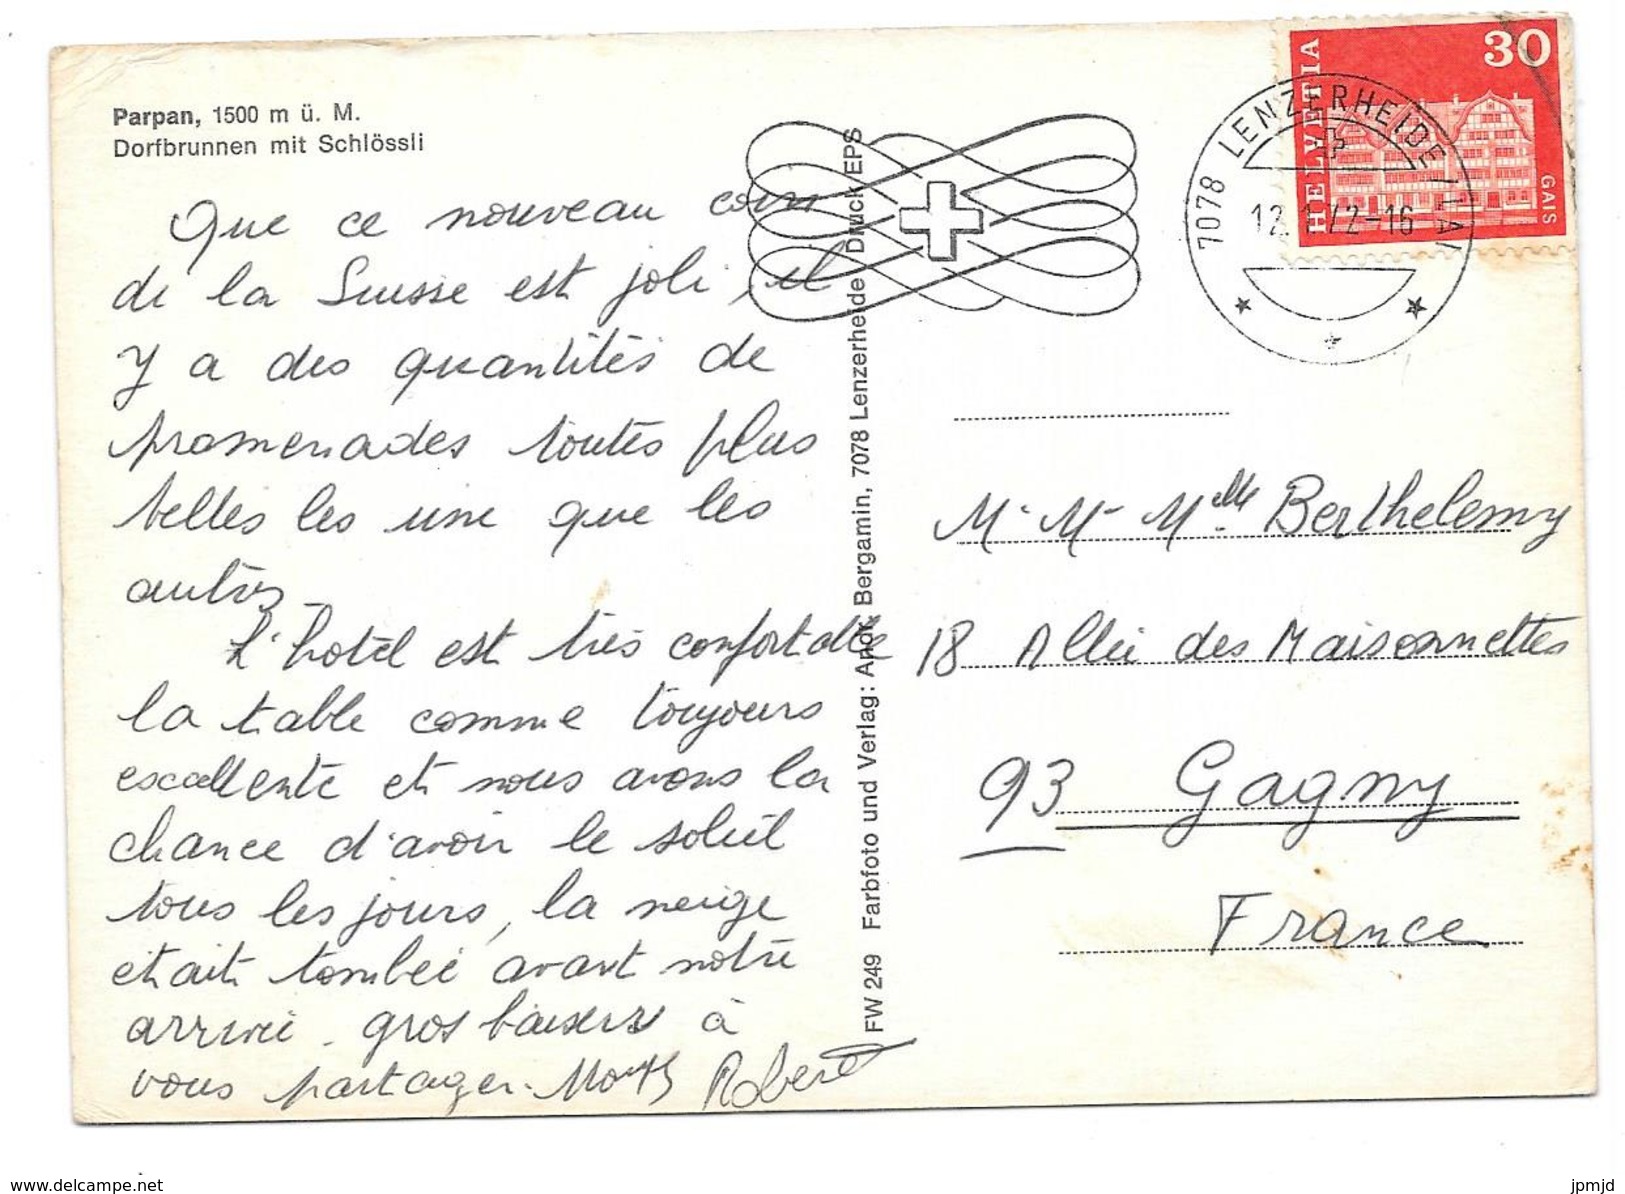 Parpan, 1500 m ü. M.
Dorfbrunnen mit Schlössli
Que ce nouveau coin
de la Suisse est joli, il
y a des quantités de
promenades toutes plus
belles les une que les
autres.
L'hotel est très confortable
la table comme toujours
excellente et nous avons la
chance d'avoir le soleil
tous les jours, la neige
était tombée avant notre
arrivée. gros baisers à
vous partager.
Robert
FW 249 Farbfoto und Verlag: Andr. Bergamin, 7078 Lenzerheide Druck EPS
HELVETIA
30
GAIS
7078 LENZERHEIDE / LAI
-16
M. Mr Melle Berthelemy
18 Allée des Maisonnettes
93 Gagny
France
www.delcampe.net
jpmjd